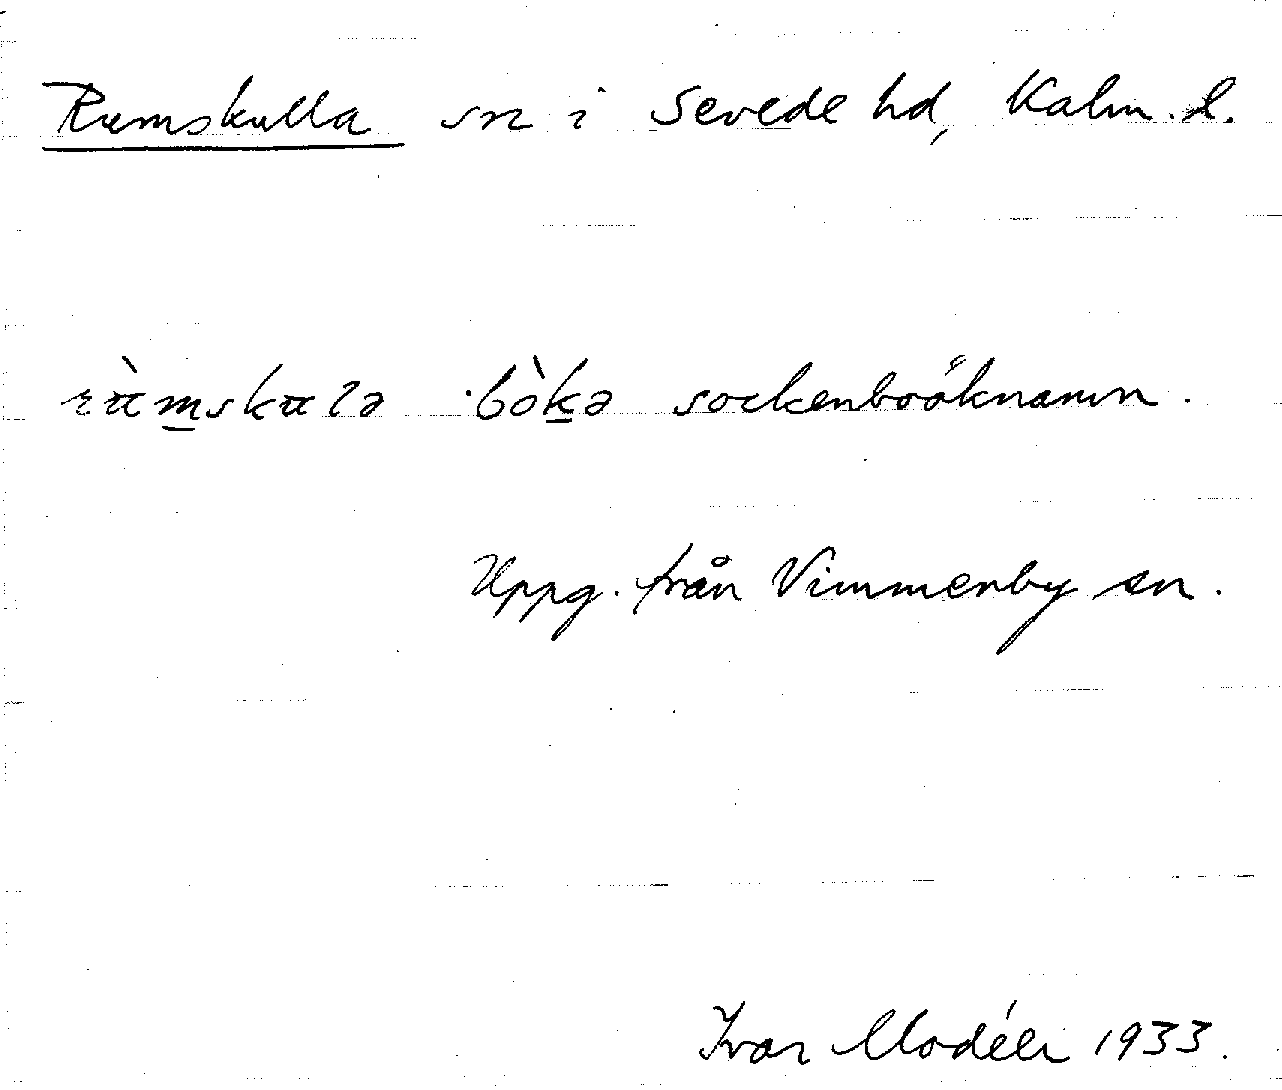 Rumskulla sn i Sevede hd, Kalm. l.
rùmskulə bòkə sockenboöknamn.
Uppg. från Vimmerby sn.
Ivar Modéer 1933.